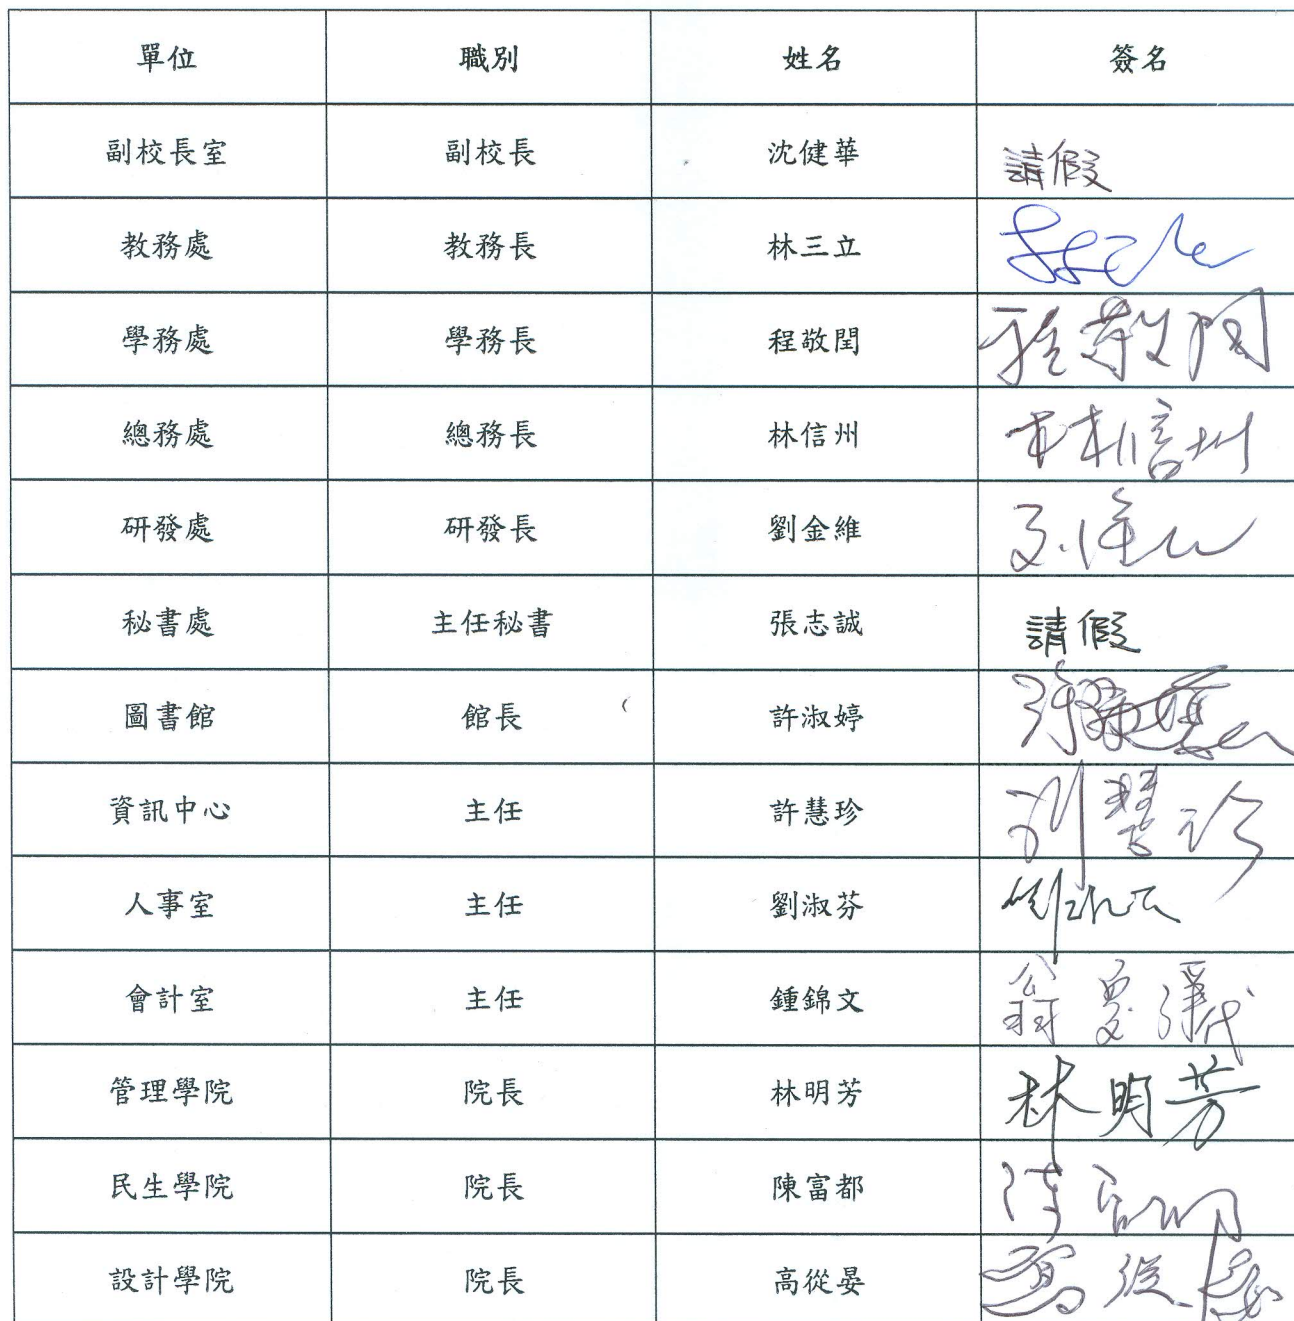 單位 職別 姓名 簽名
副校長室 副校長 沈健華 請假
教務處 教務長 林三立
學務處 學務長 程敬閏 程敬閏
總務處 總務長 林信州 林信州
研發處 研發長 劉金維
秘書處 主任秘書 張志誠 請假
圖書館 館長 許淑婷
資訊中心 主任 許慧珍
人事室 主任 劉淑芬
會計室 主任 鍾錦文
管理學院 院長 林明芳 林明芳
民生學院 院長 陳富都
設計學院 院長 高從晏 高從晏